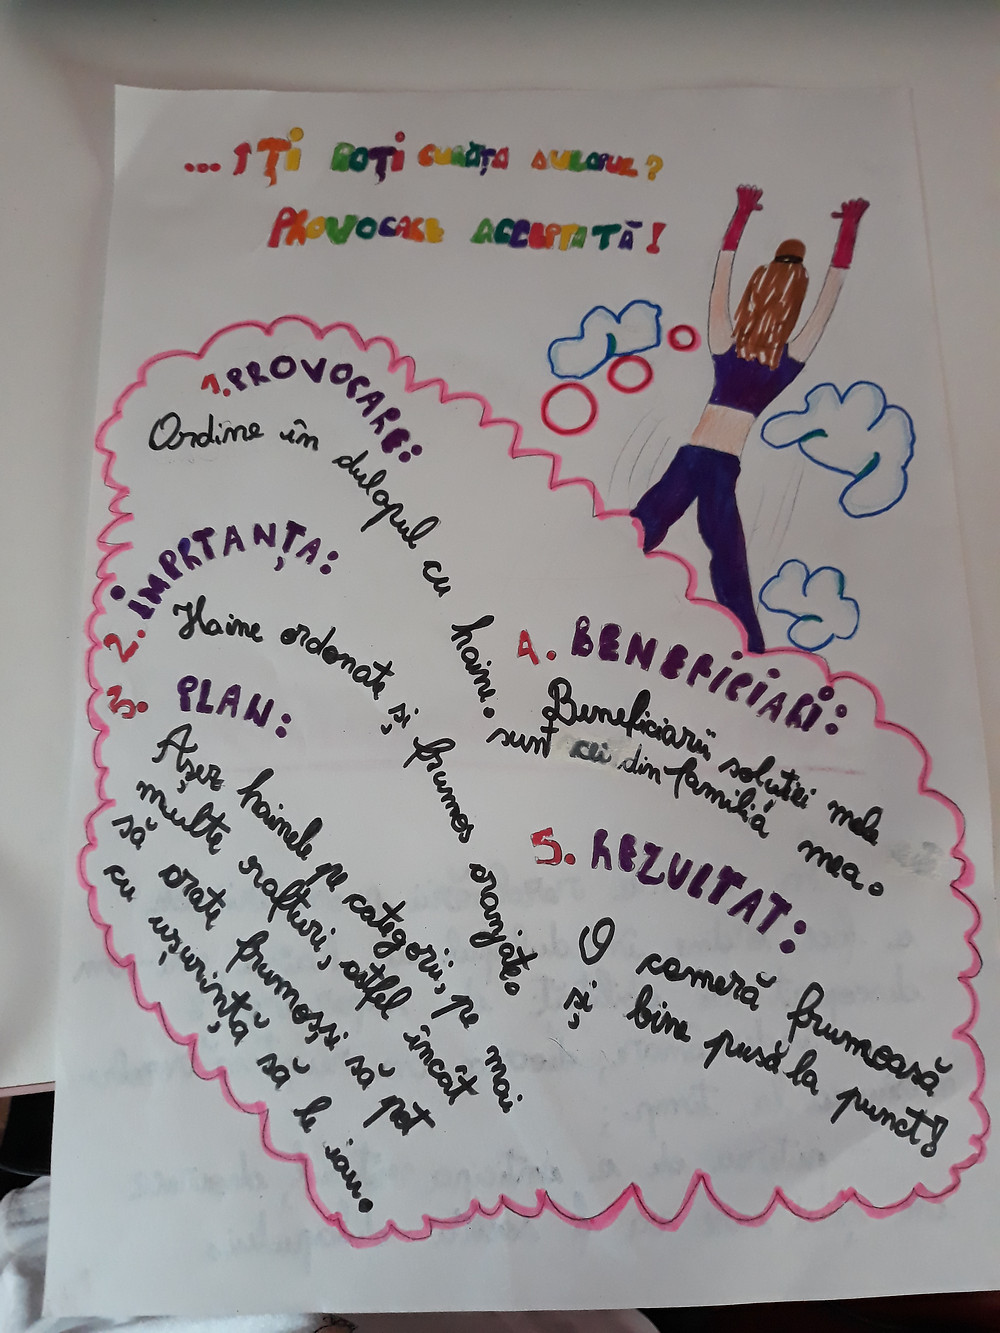 ...IȚI POȚI CURĂȚA DULAPUL?
PROVOCARE ACCEPTATĂ!
1. PROVOCARE:
Ordine în dulapul cu haine.
2. IMPRTANȚA:
Haine ordonate și frumos aranjate.
3. PLAN:
Așez hainele pe categorii, pe mai
multe rafturi, astfel încât
să arate frumos și să pot
cu ușurință să le iau.
4. BENEFICIARI:
Beneficiarii soluției mele
sunt cei din familia mea.
5. REZULTAT:
O cameră frumoasă
și bine pusă la punct!